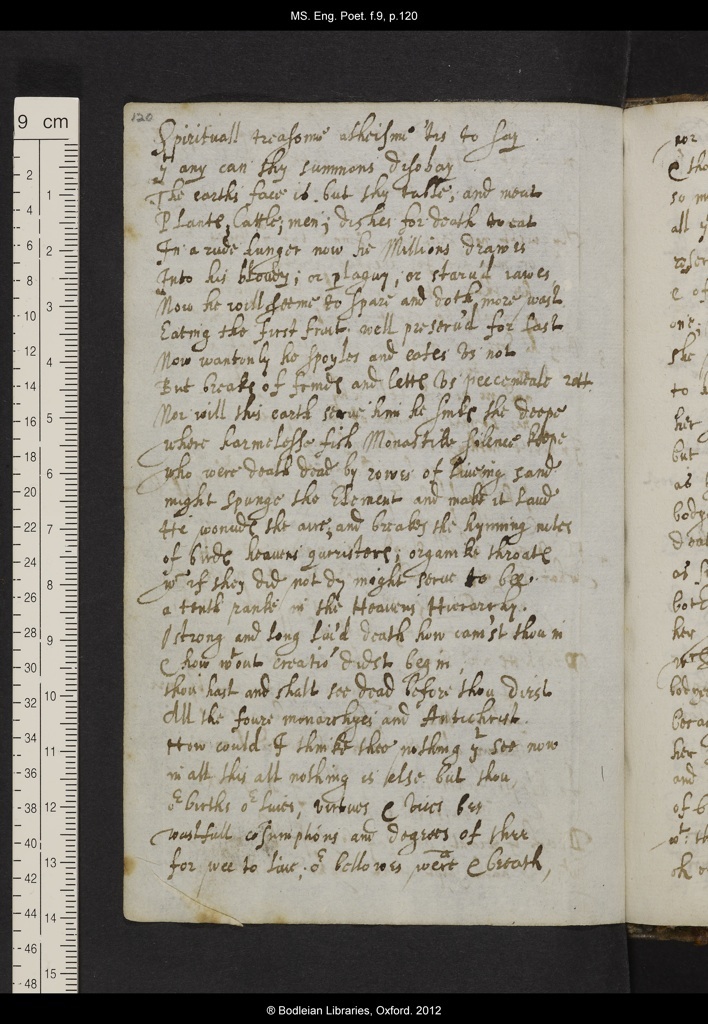 MS. Eng. Poet. f.9, p.120
9 cm
120
Spirituall treasome atheisme 'tis to say
yt any can thy summons disobay
The earths face is but thy table; and meat
Plants, Cattle, men; dishes for death to eat
In a rude hunger now he Millions drawes
Into his bloudy; or plaguy, or staru'd iawes
Now he will seeme to spare and doth more wast
Eating the first fruit well preseru'd for last
Now wantonly he spoyles and eates vs not
But breakes of frends and letts vs peecemeale rott
Nor will this earth serue him he sinks the deepe
where harmelesse fish Monastike silence keepe
who were death dead by rowes of liueing sand
might spunge the Element and make it land
He wounds the aire, and breakes the hymning notes
of birds heauens quiristers; organike throats
wch if they did not dy might serue to bee
a tenth ranke in the Heauens Hierarchy.
O strong and long liu'd death how cam'st thou in
& how wthout creatiō didst begin,
thou hast and shalt see dead before thou dyest
All the foure monarchyes and Antichrist.
How could I thinke thee nothing yt see now
in all this all nothing is else but thou
or births or liues, vertues & vices bee
wastfull cōsumptions and degrees of thee
for wee to liue, or bellowes weare & breath,
® Bodleian Libraries, Oxford. 2012